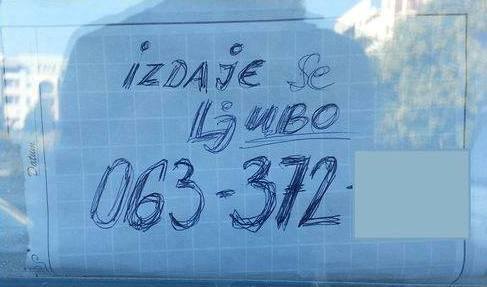 iZDAjE Se
Ljubo
063-372-
Datum